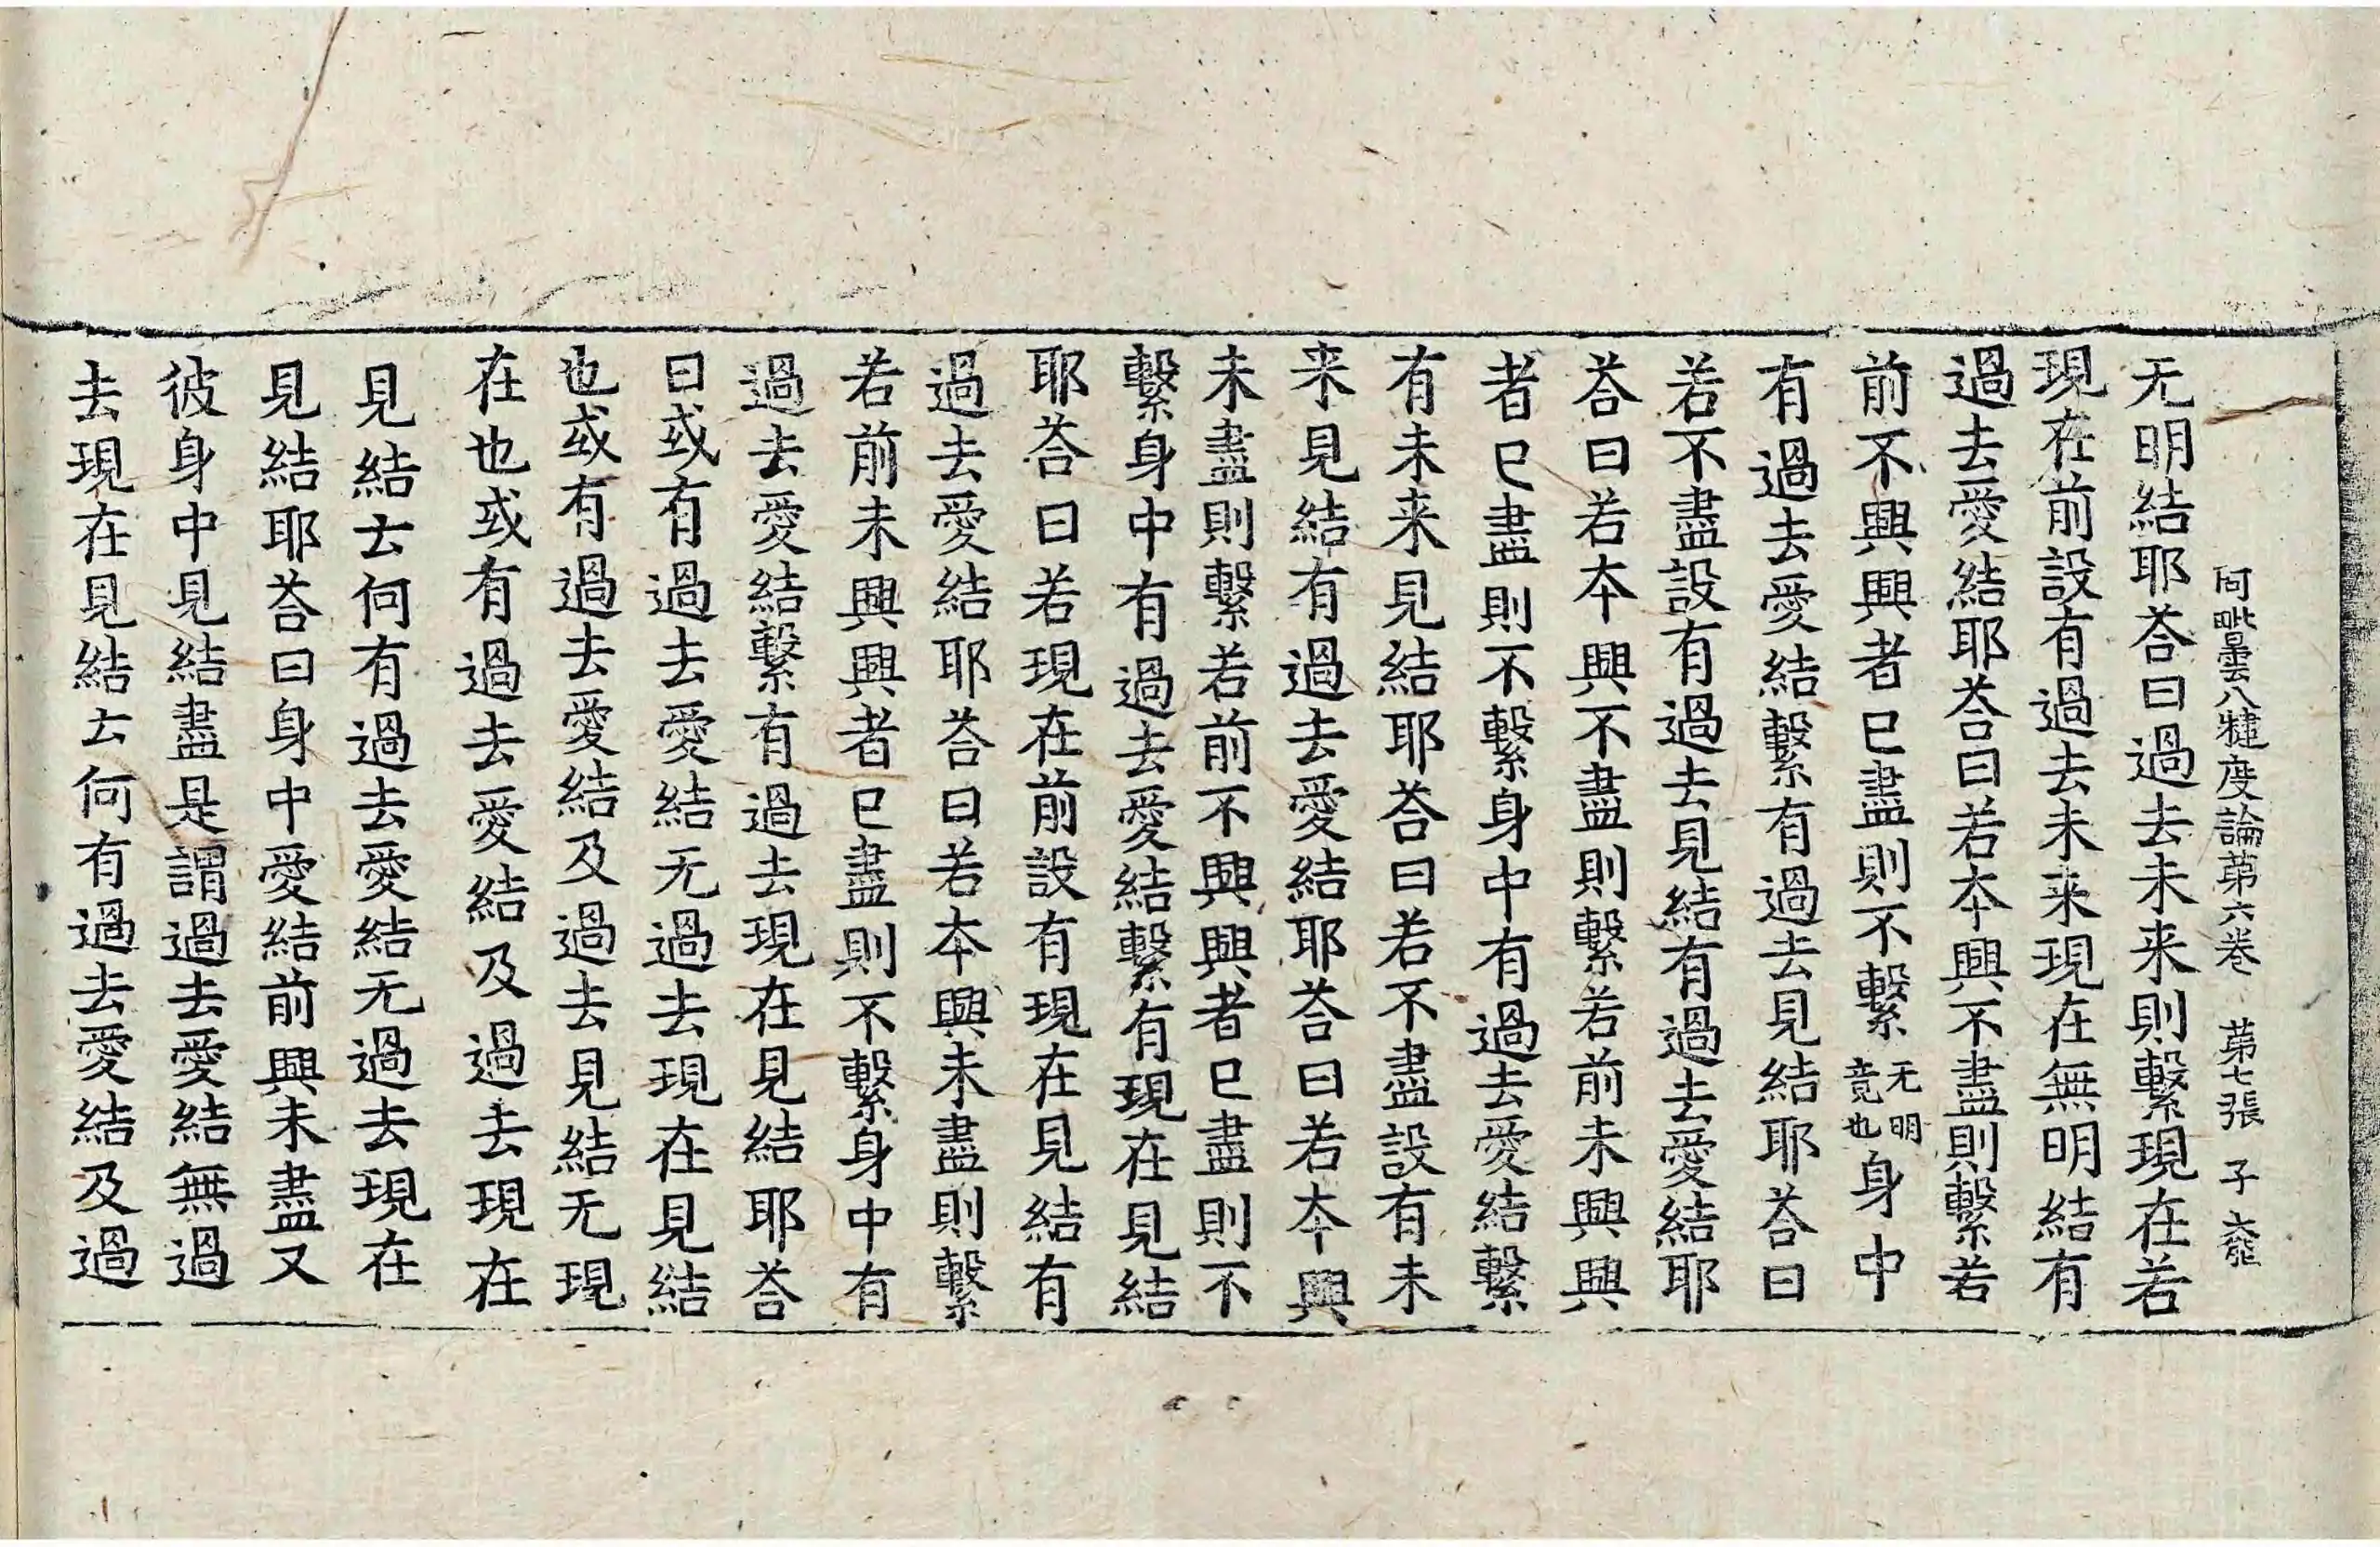 阿毗曇八犍度論第六卷 第七張 子
无明結耶荅曰過去未来則繫現在若
現在前設有過去未来現在無明結有
過去愛結耶荅曰若本興不盡則繫若
前不興興者已盡則不繫无明竟也身中
有過去愛結繫有過去見結耶荅曰
若不盡設有過去見結有過去愛結耶
荅曰若本興不盡則繫若前未興興
者已盡則不繫身中有過去愛結繫
有未来見結耶荅曰若不盡設有未
来見結有過去愛結耶荅曰若本興
未盡則繫若前不興興者已盡則不
繫身中有過去愛結繫有現在見結
耶荅曰若現在前設有現在見結有
過去愛結耶荅曰若本興未盡則繫
若前未興興者已盡則不繫身中有
過去愛結繫有過去現在見結耶荅
曰或有過去愛結无過去現在見結
也或有過去愛結及過去見結无現
在也或有過去愛結及過去現在
見結云何有過去愛結无過去現在
見結耶荅曰身中愛結前興未盡又
彼身中見結盡是謂過去愛結無過
去現在見結云何有過去愛結及過